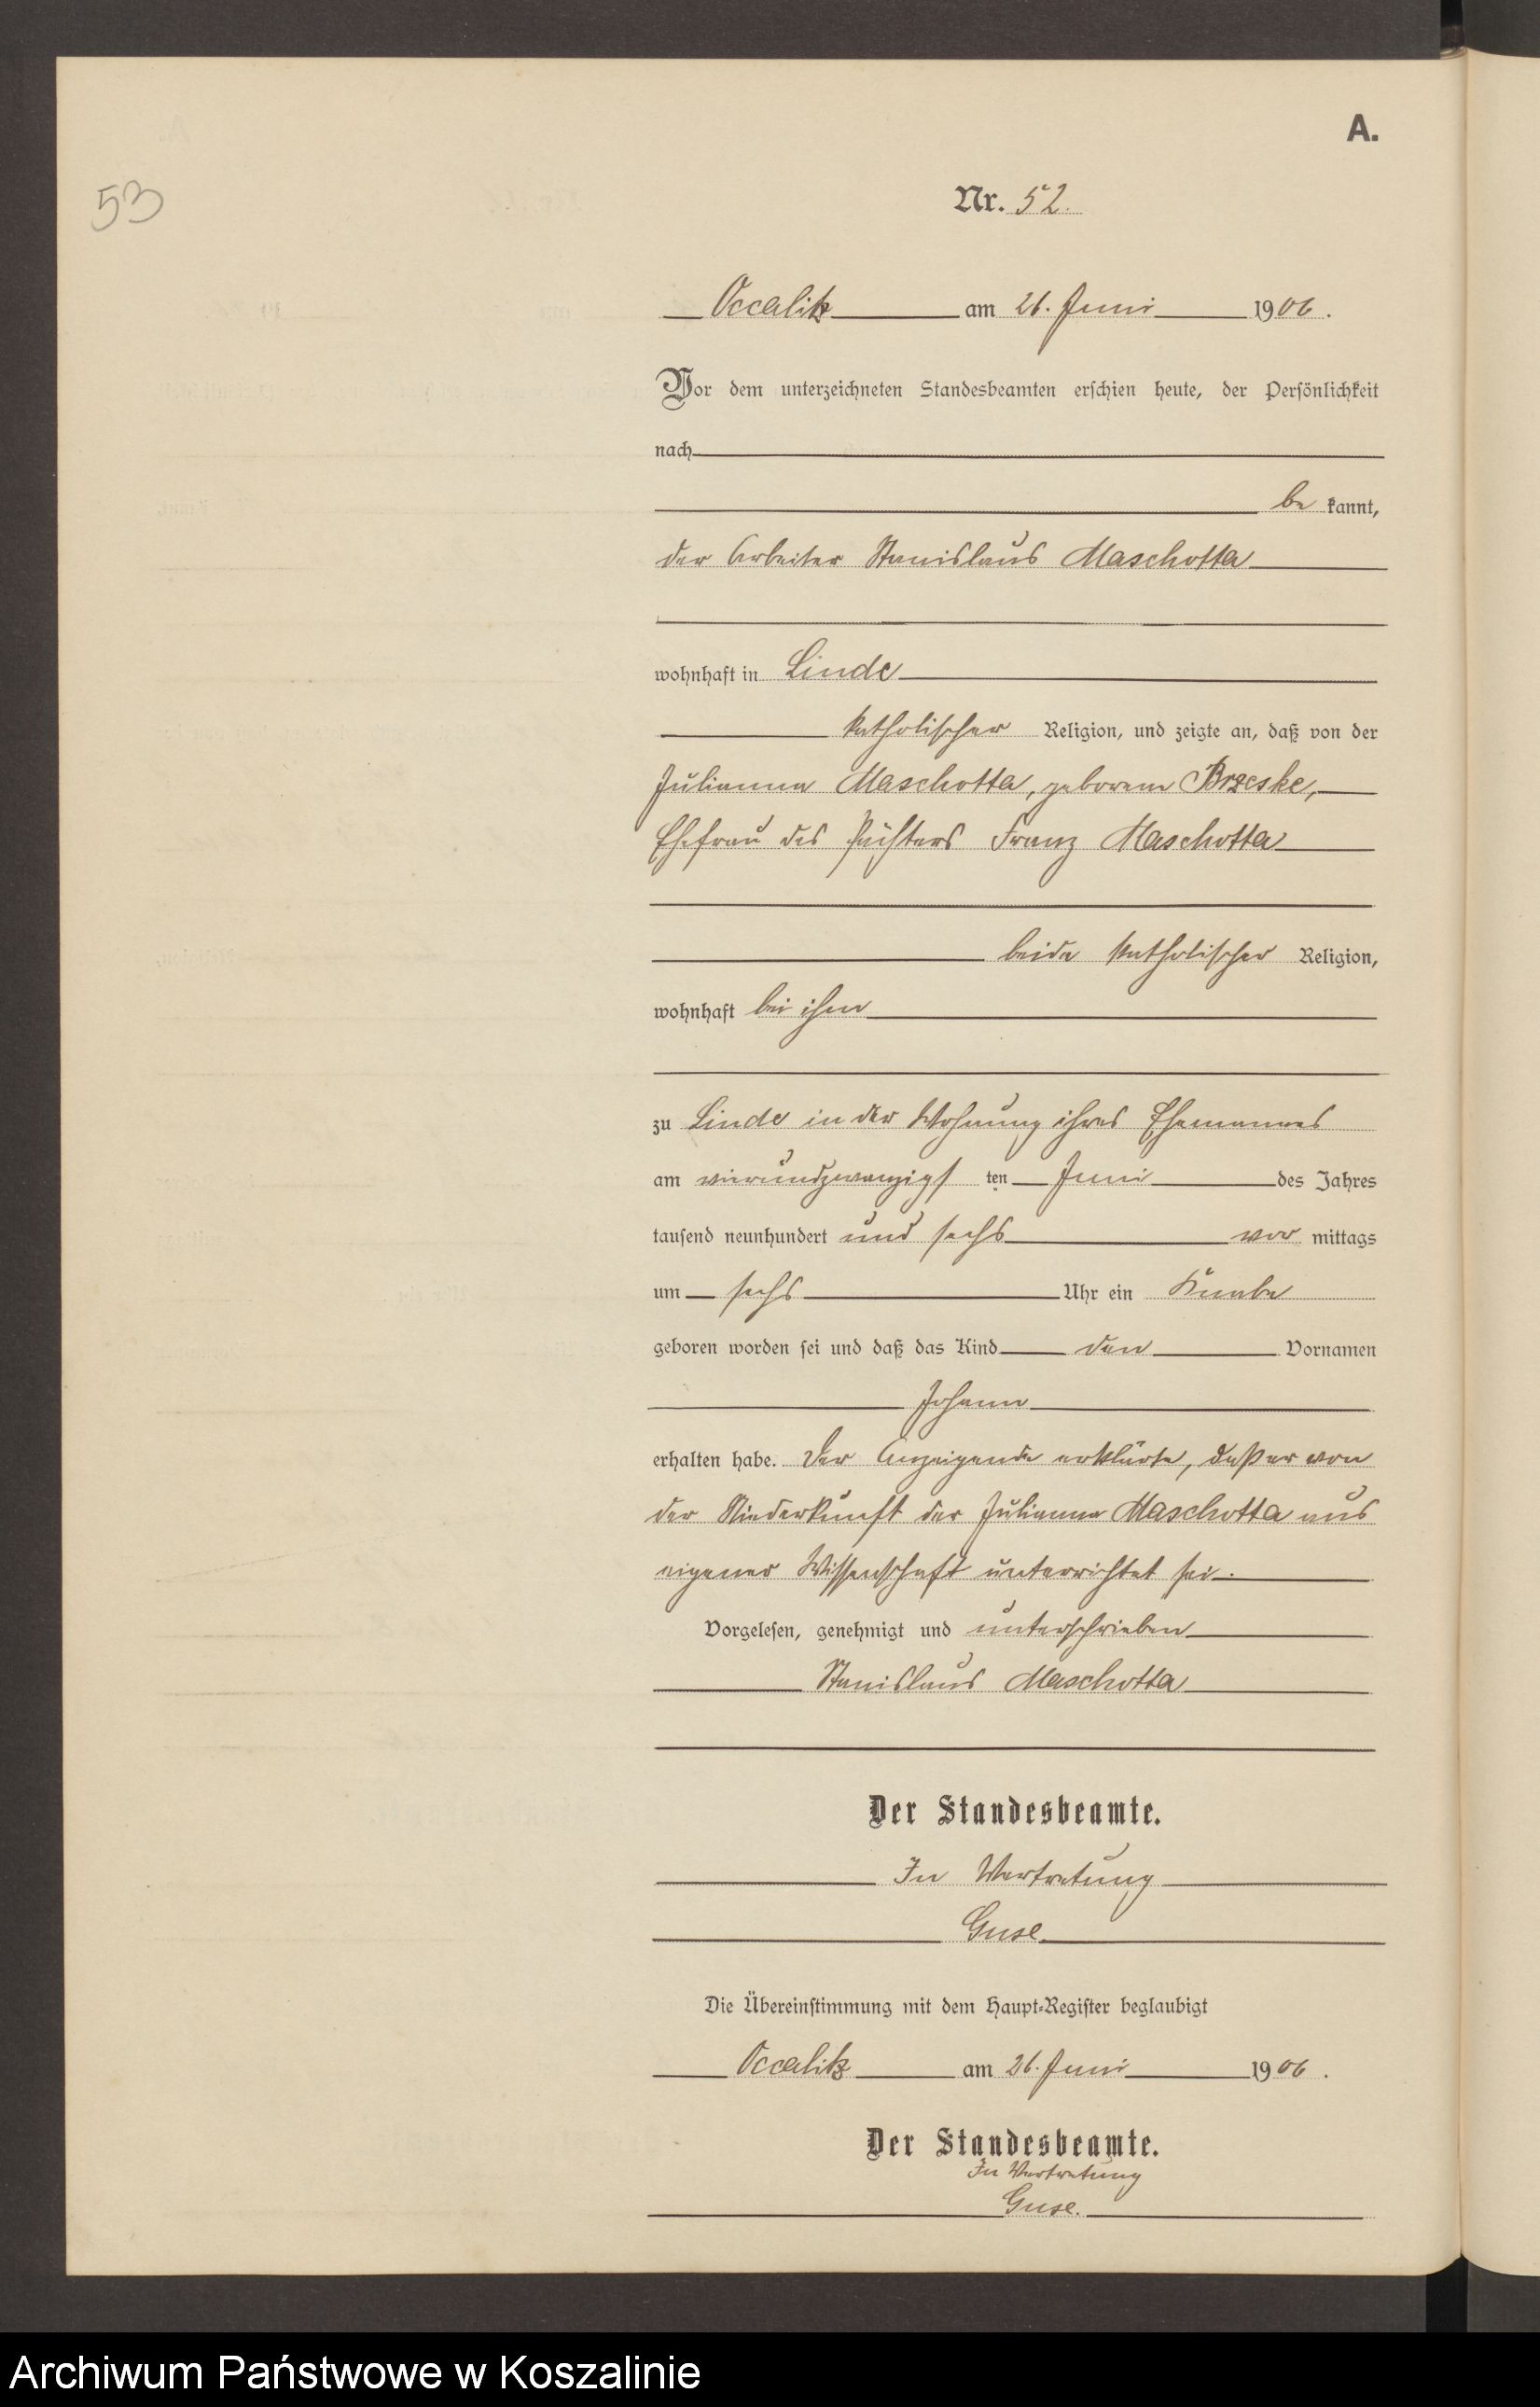 A.
53
Nr. 52.
Occalitz am 26. Juni 1906.
Vor dem unterzeichneten Standesbeamten erschien heute, der Persönlichkeit
nach
be kannt,
der Arbeiter Stanislaus Maschotta
wohnhaft in Linde
katholischer Religion, und zeigte an, daß von der
Julianna Maschotta, geborene Brzeske,
Ehefrau des Pächters Franz Maschotta
beide katholischer Religion,
wohnhaft bei ihm
zu Linde in der Wohnung ihres Ehemannes
am vierundzwanzigsten Juni des Jahres
tausend neunhundert und sechs vor mittags
um sechs Uhr ein Knabe
geboren worden sei und daß das Kind den Vornamen
Johann
erhalten habe. Der Anzeigende erklärte, daß er von
der Niederkunft der Julianna Maschotta aus
eigener Wissenschaft unterrichtet sei.
Vorgelesen, genehmigt und unterschrieben
Stanislaus Maschotta
Der Standesbeamte.
In Vertretung
Guse
Die Übereinstimmung mit dem Haupt-Register beglaubigt
Occalitz am 26. Juni 1906.
Der Standesbeamte.
In Vertretung
Guse.
Archiwum Państwowe w Koszalinie